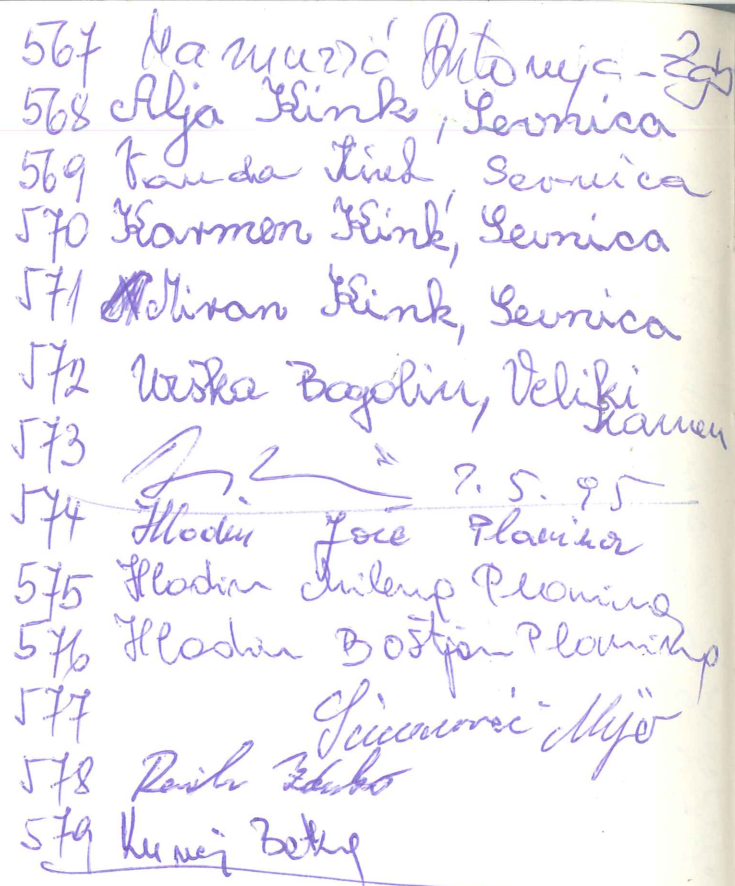 567 Mamuzić Antonija - Zgb
568 Alja Kink, Sevnica
569 Vanda Kink, Sevnica
570 Karmen Kink, Sevnica
571 Miran Kink, Sevnica
572 Urška Bogolin, Veliki
Kamen
573
7. 5. 95
574 Hladin Jože Planina
575 Hladin Milena Planina
576 Hladin Boštjan Planina
577 Simunović Mijo
578
579 Kunej Betka